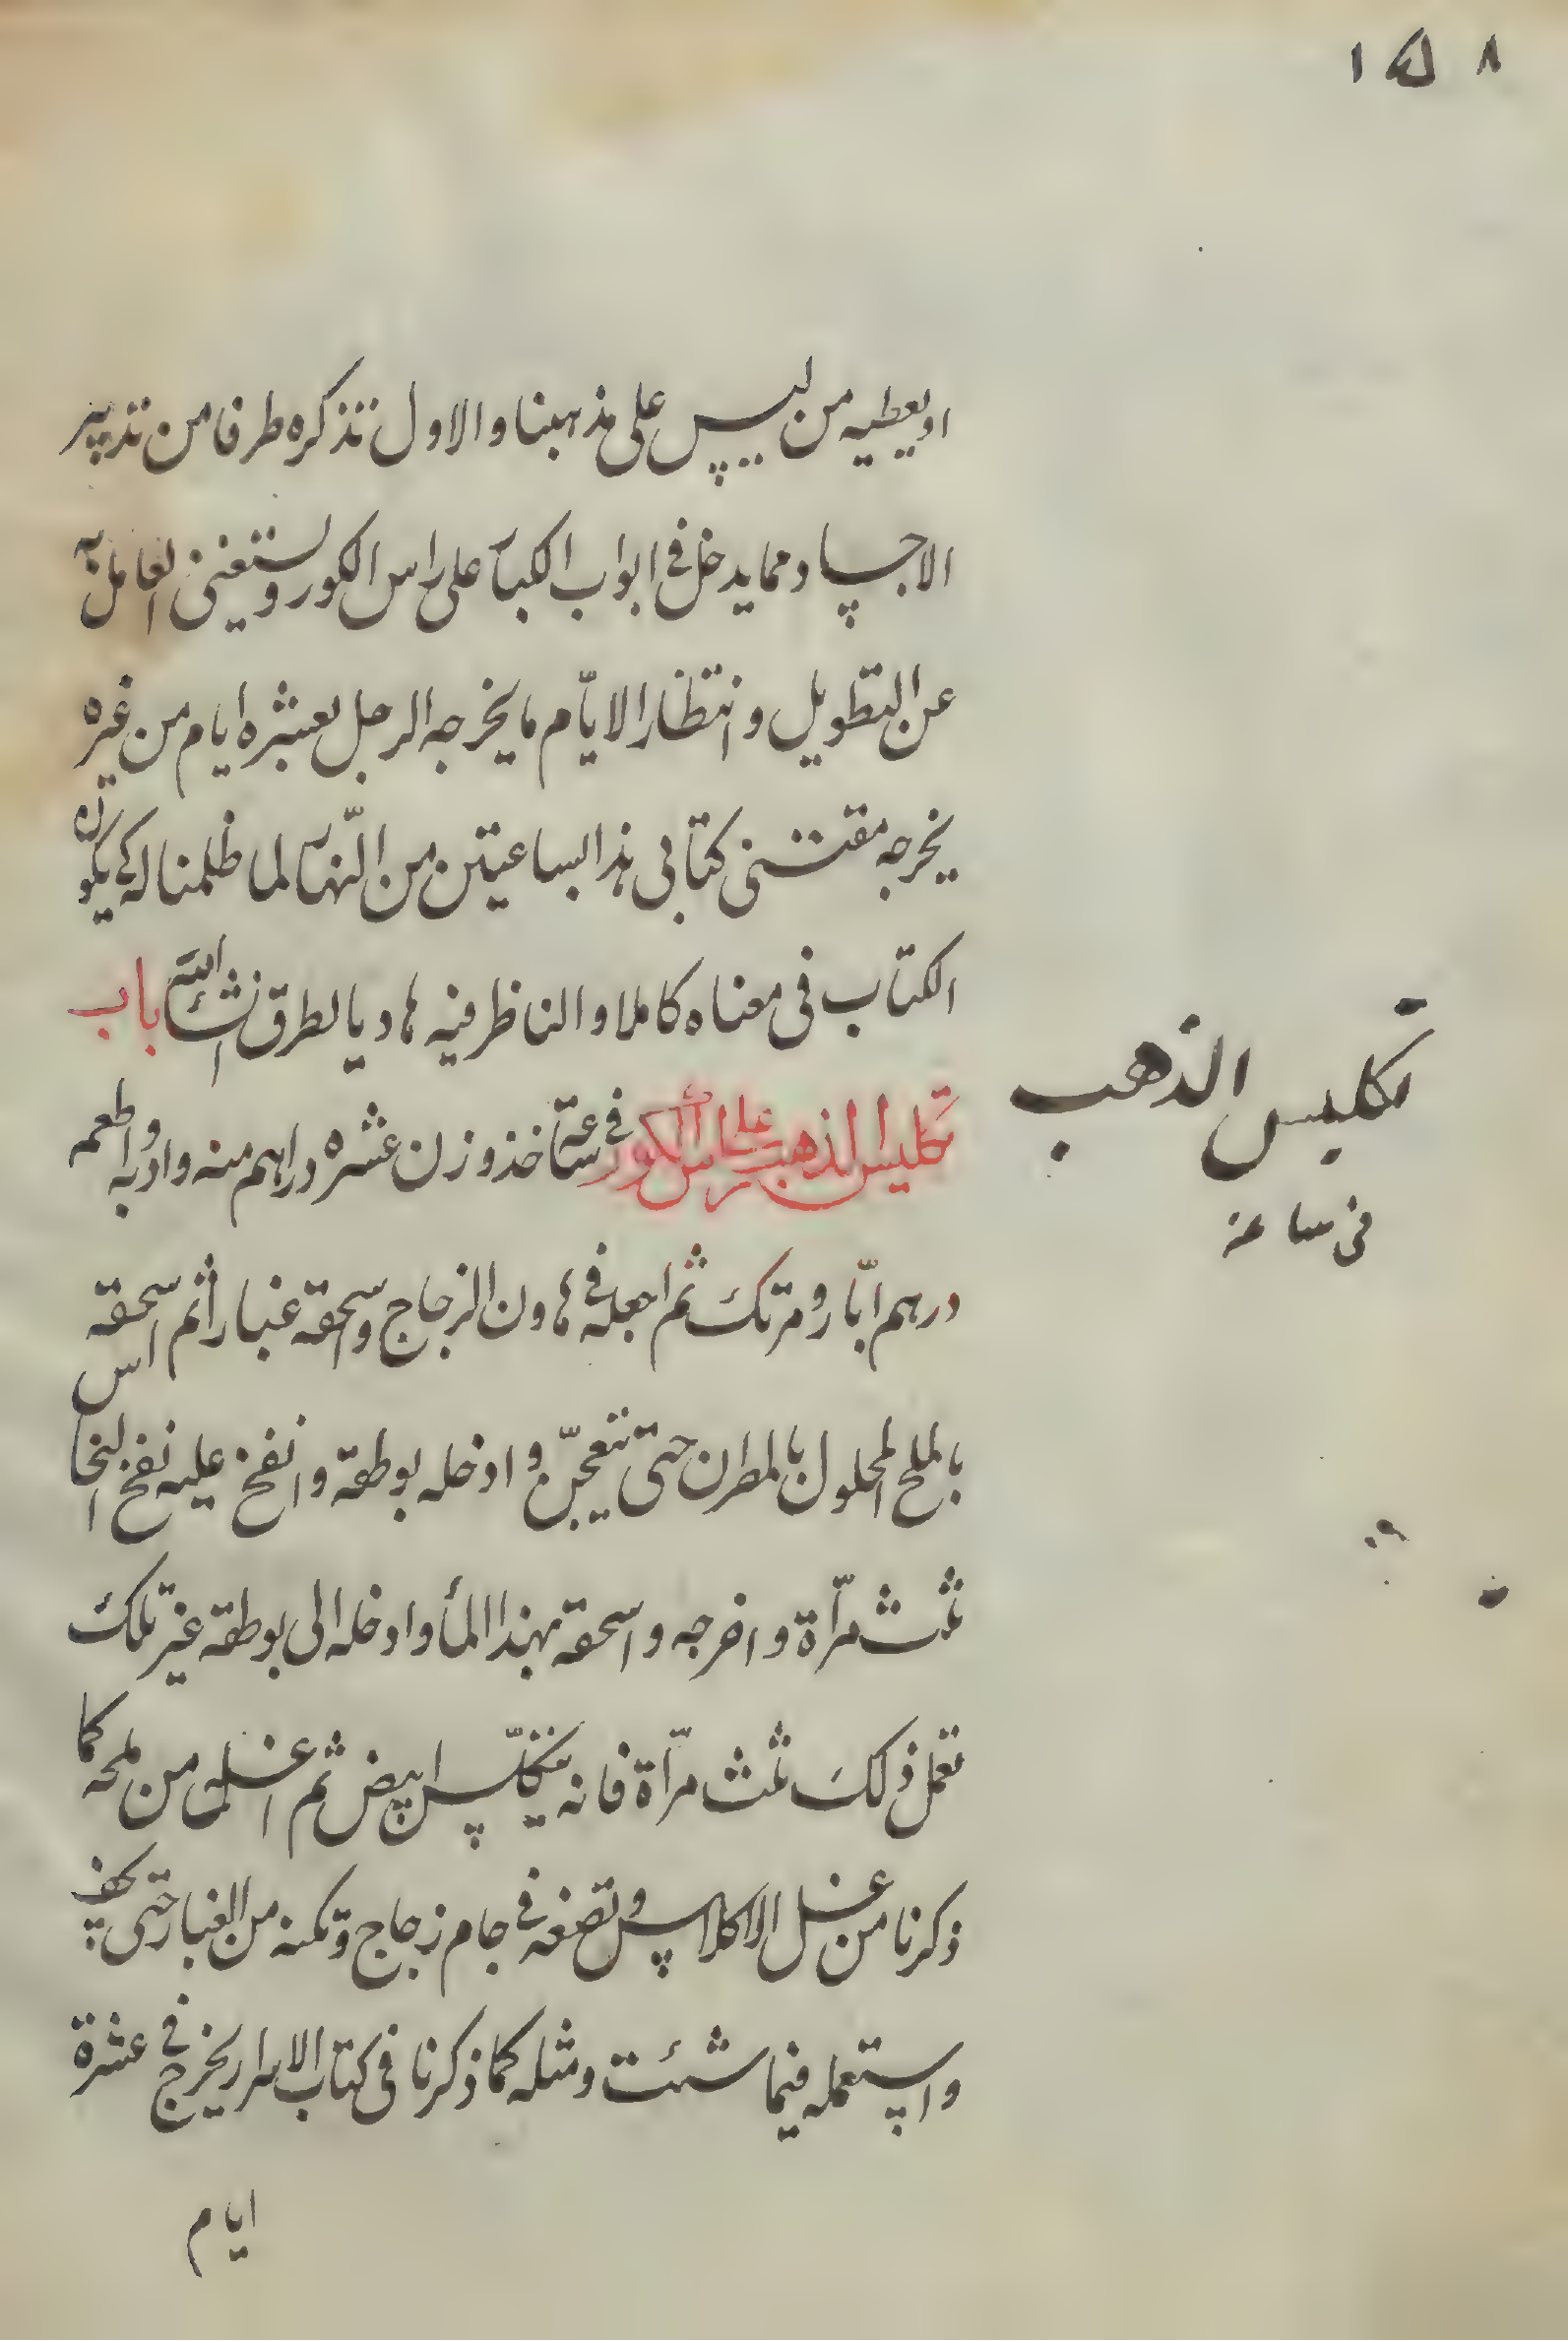 ١٥٨
او يعطيه من ليس على مذهبنا والاول نذكره طرفا من تدبير
الاجساد ومما يدخل في ابواب الكبار على راس الكور ويستغنى العامل به
عن التطويل وانتظار الايّام ما يخرجه الرجل بعشره ايام من غيره
يخرجه مقتنى كتابى هذا بساعتين من النّهار لما ظلمنا له كى يكون
الكتاب فى معناه كاملا والناظر فيه هاديا لطرق انشاء الله باب
تكليس الذهب على رأس الكور في ساعة تاخذ وزن عشره دراهم منه واذبه واطعمه
درهم ابّار ومرتك ثم اجعله في هاون الزجاج واسحقه غبارا ثم اسحقه
بالملح المحلول بالمطران حتى تتعجّن وادخله بوطقة وانفخ عليه نفخ النحاس
ثلث مرّاة واخرجه واسحقه بهذا المأ وادخله الى بوطقه غير تلك
تعمل ذلك ثلث مرّاة فانه يتكلّس ابيض ثم اغسله من ملحه كما
ذكرنا من غسل الاكلاس وتضعه في جام زجاج وتكنه من الغبار حتى يجف
واستعمله فيما شئت ومثله كما ذكرنا فى كتاب الاسرار يخرج في عشرة
ايام
تكليس الذهب
فى ساعة